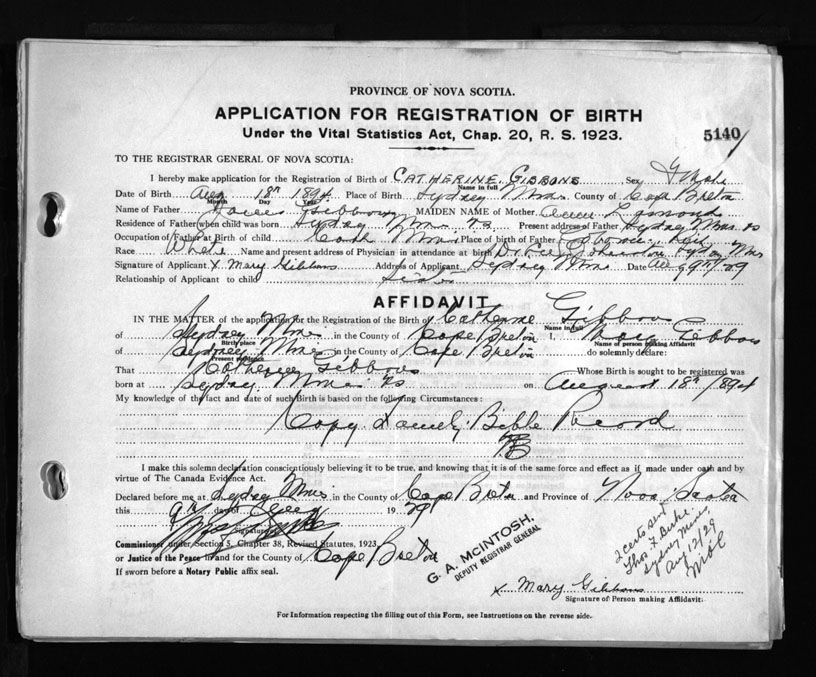 PROVINCE OF NOVA SCOTIA.
APPLICATION FOR REGISTRATION OF BIRTH
Under the Vital Statistics Act, Chap. 20, R. S. 1923.
5140
TO THE REGISTRAR GENERAL OF NOVA SCOTIA:
I hereby make application for the Registration of Birth of CATHERINE GIBBONS Sex Female
Name in full
Date of Birth Aug 18th 1894 Place of Birth Sydney Mines County of Cape Breton
Month Day Year
Name of Father James Gibbons MAIDEN NAME of Mother
Residence of Father when child was born Sydney Mines NS Present address of Father Sydney Mines NS
Occupation of Father at Birth of child Place of Birth of Father
Race White Name and present address of Physician in attendance at birth Dr
Signature of Applicant x Mary Gibbons Address of Applicant Sydney Mines Date Aug 9th/29
Relationship of Applicant to child Sister
AFFIDAVIT
IN THE MATTER of the application for the Registration of the Birth of Catherine Gibbons
Name in full
of Sydney Mines in the County of Cape Breton I, Mary Gibbons
Birth place Name of person making Affidavit
of Sydney Mines in the County of Cape Breton do solemnly declare:
Present residence
That Catherine Gibbons Whose Birth is sought to be registered was
born at Sydney Mines NS on August 18th 1894
My knowledge of the fact and date of such Birth is based on the following Circumstances:
Copy Family Bible Record
I make this solemn declaration conscientiously believing it to be true, and knowing that it is of the same force and effect as if made under oath and by
virtue of The Canada Evidence Act.
Declared before me at Sydney Mines in the County of Cape Breton and Province of Nova Scotia
this 9th day of Aug 1929
Signature
Commissioner under Section 3, Chapter 38, Revised Statutes, 1923
or Justice of the Peace in and for the County of Cape Breton
If sworn before a Notary Public affix seal.
G. A. McINTOSH,
DEPUTY REGISTRAR GENERAL
2 certs sent
Thos X Burke
Sydney Mines,
Aug 12/29
x Mary Gibbons
Signature of Person making Affidavit:
For Information respecting the filling out of this Form, see Instructions on the reverse side.